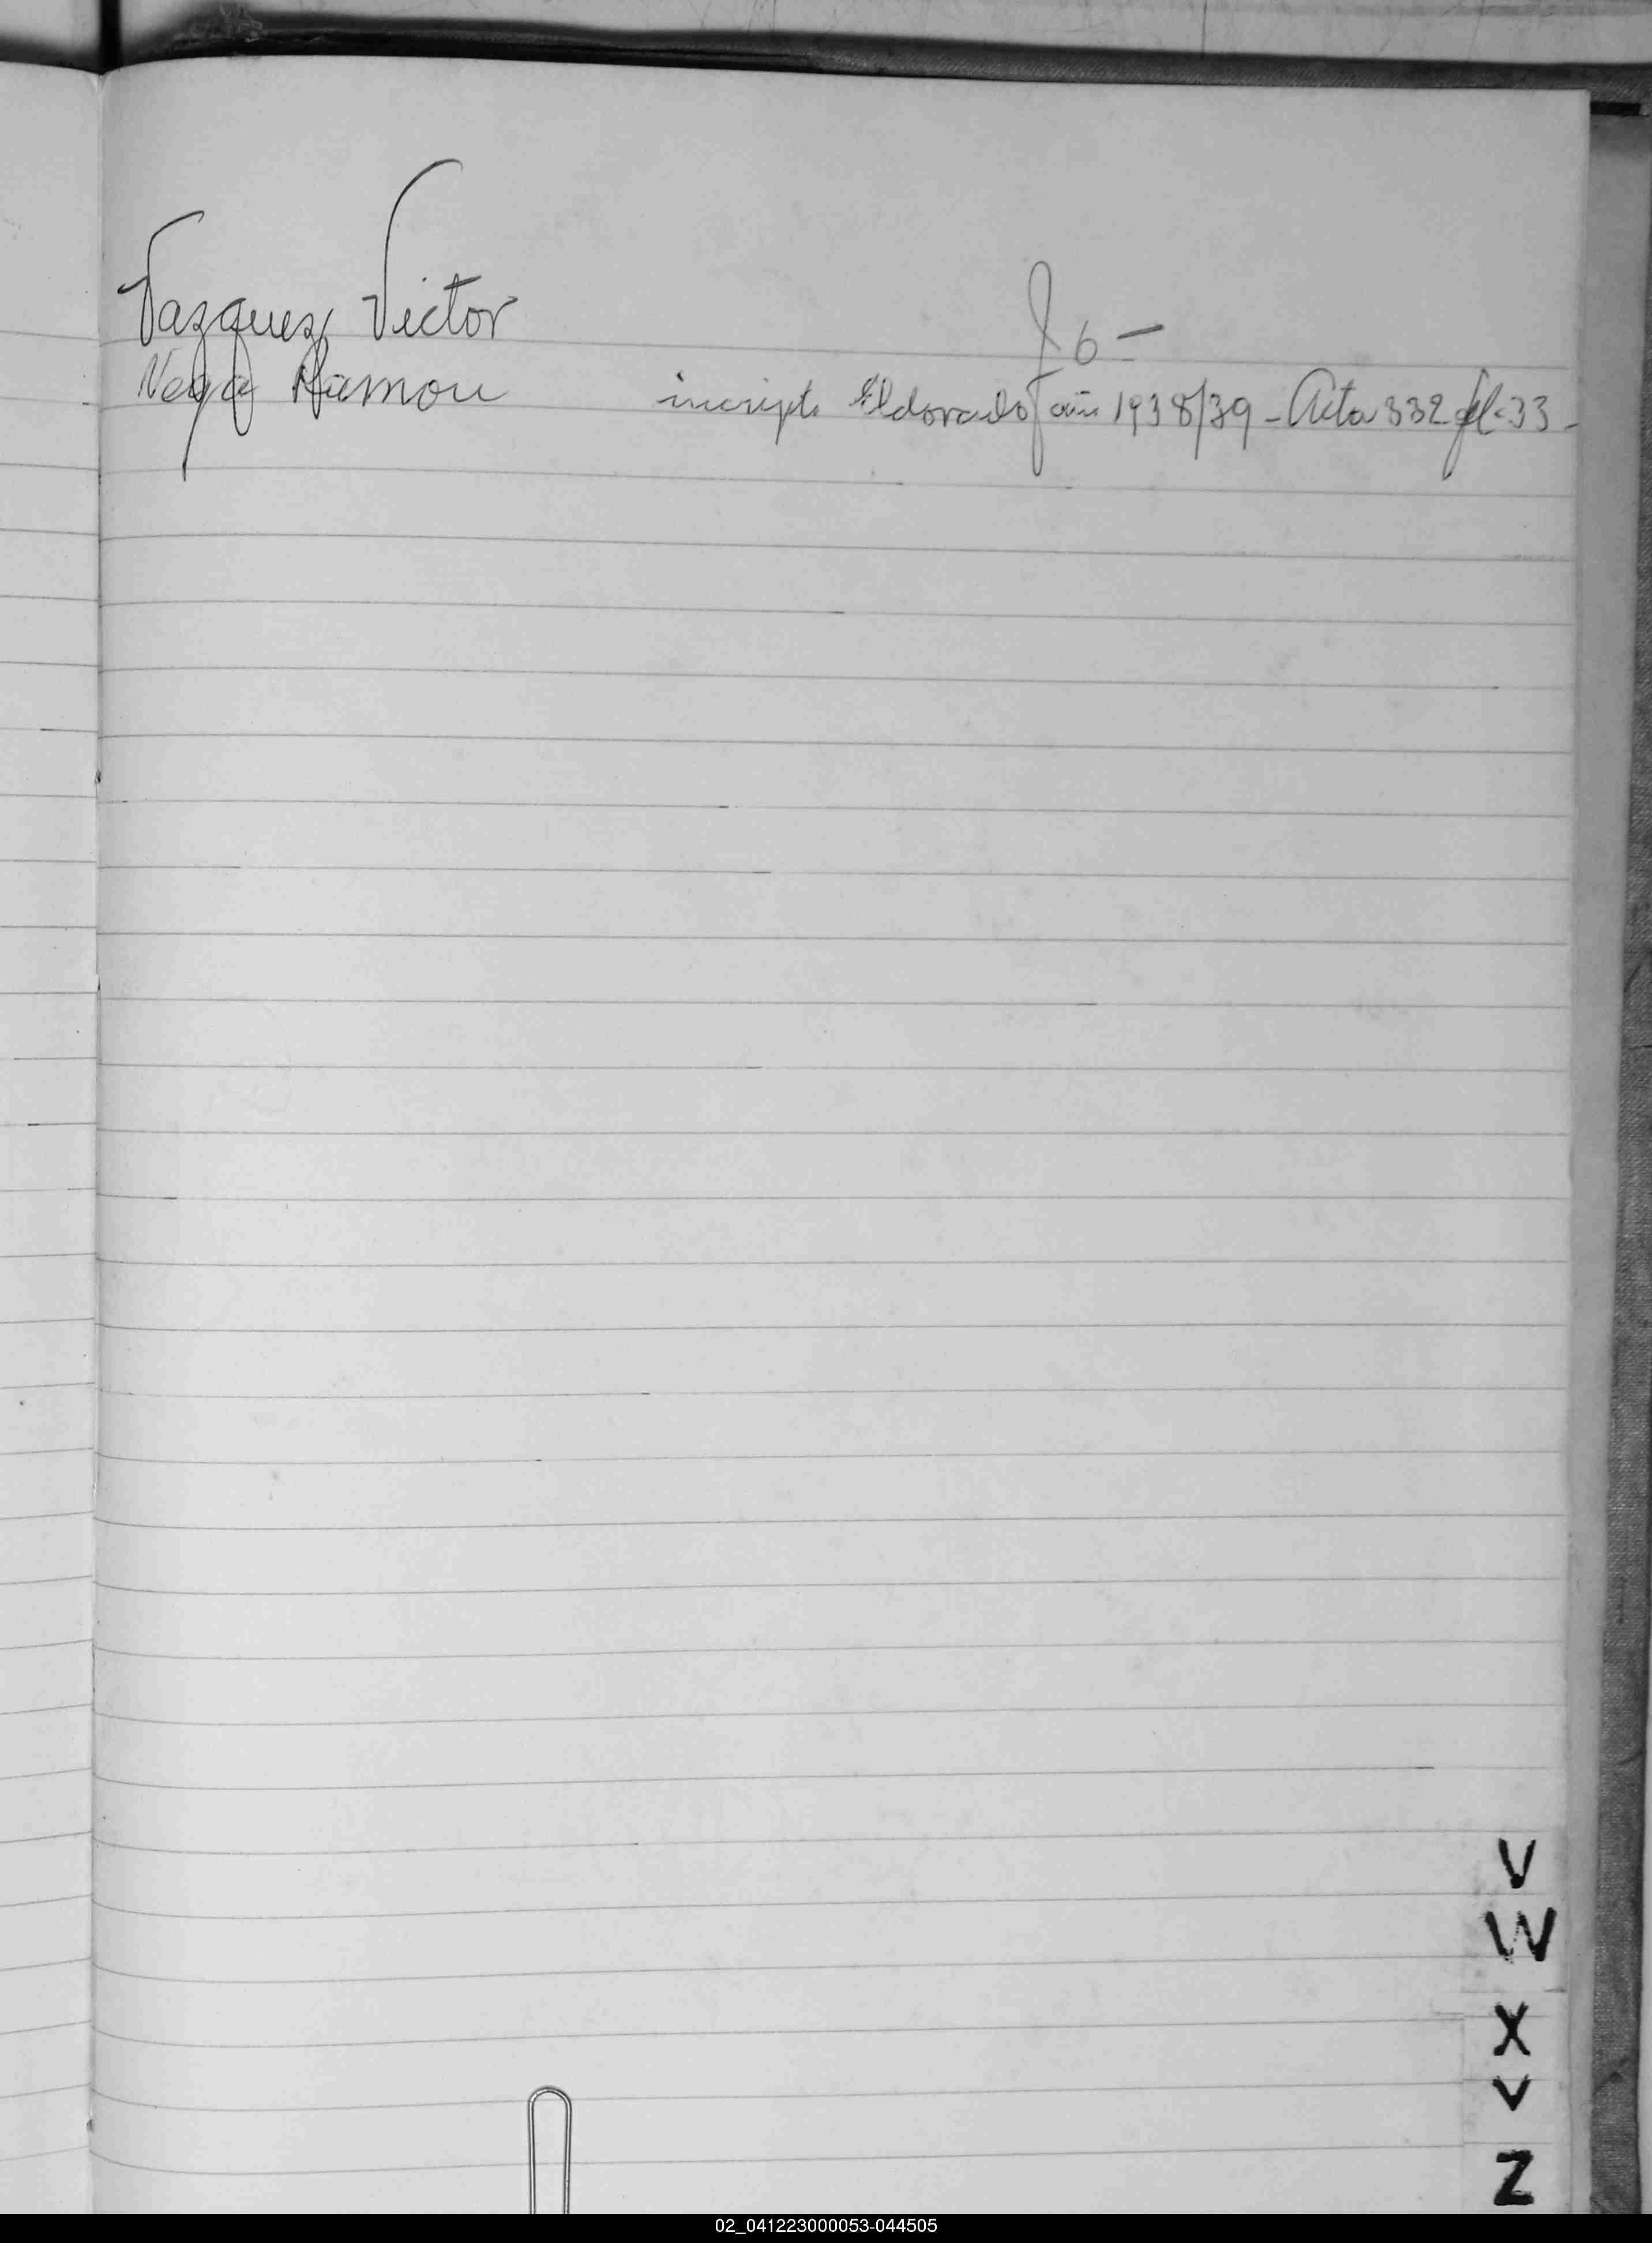 Vazquez Victor f 6 -
Vega Ramon inscripto Eldorado año 1938/39 - Acta 332 fl. 33 -
V
W
X
Y
Z
02_041223000053-044505